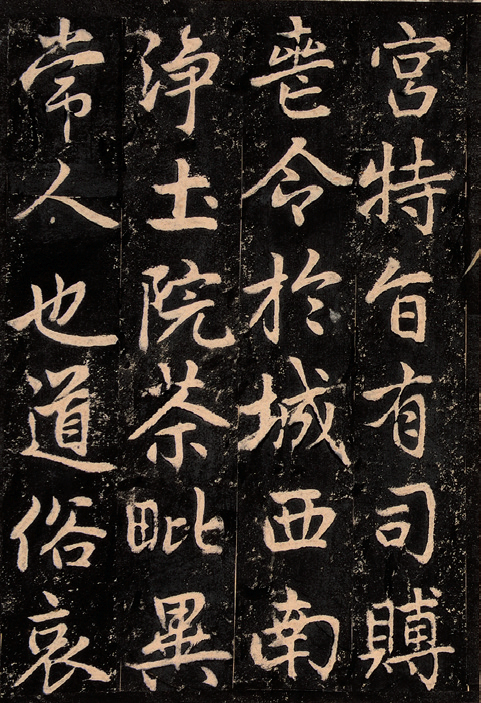 宮特旨有司賻
喪令於城西南
淨土院茶毗異
常人也道俗哀